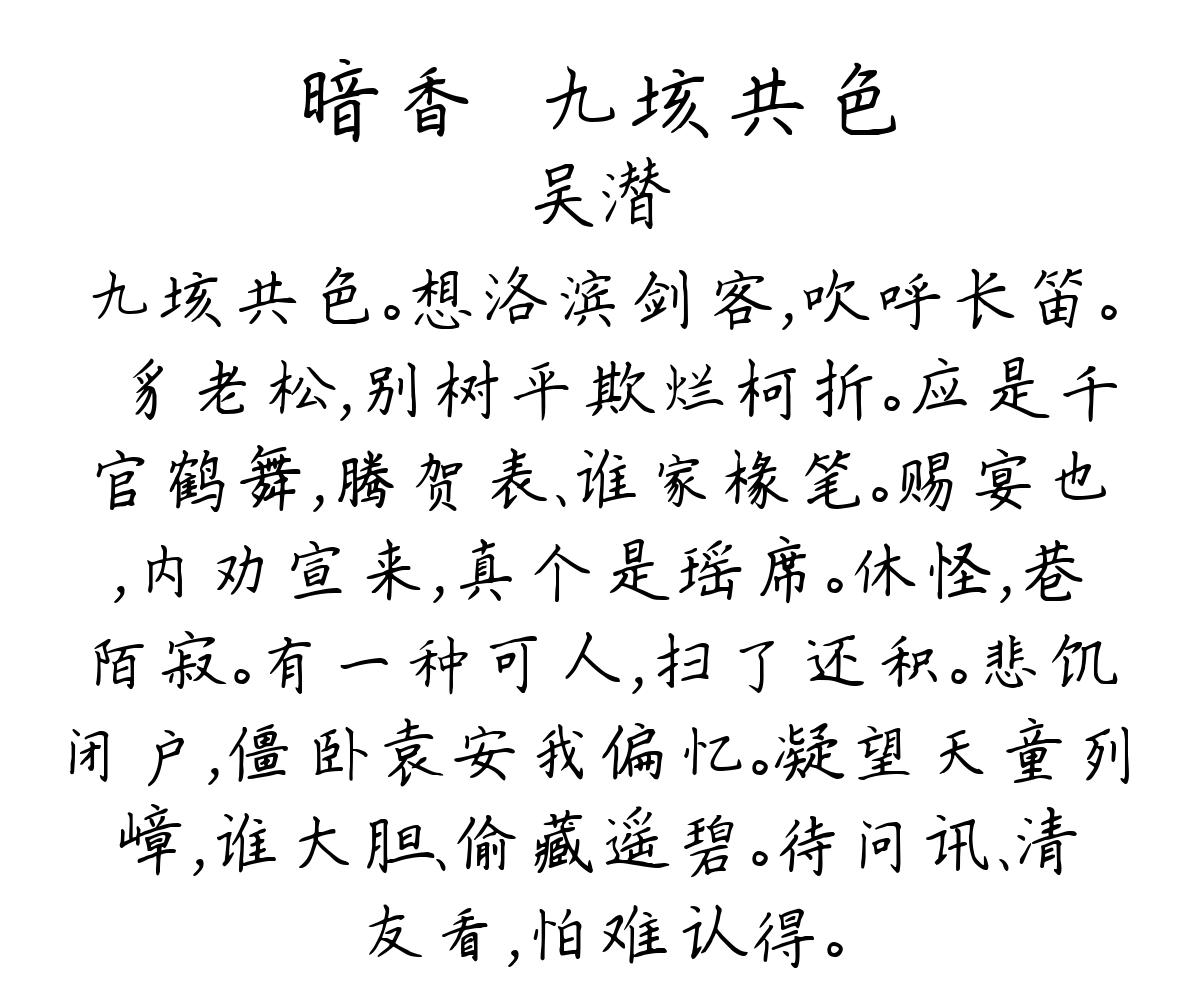 暗香 九垓共色
吴潜
九垓共色。想洛滨剑客,吹呼长笛。
豸老松,别树平欺烂柯折。应是千
官鹤舞,腾贺表、谁家椽笔。赐宴也
,内劝宣来,真个是瑶席。休怪,巷
陌寂。有一种可人,扫了还积。悲饥
闭户,僵卧袁安我偏忆。凝望天童列
嶂,谁大胆、偷藏遥碧。待问讯、清
友看,怕难认得。